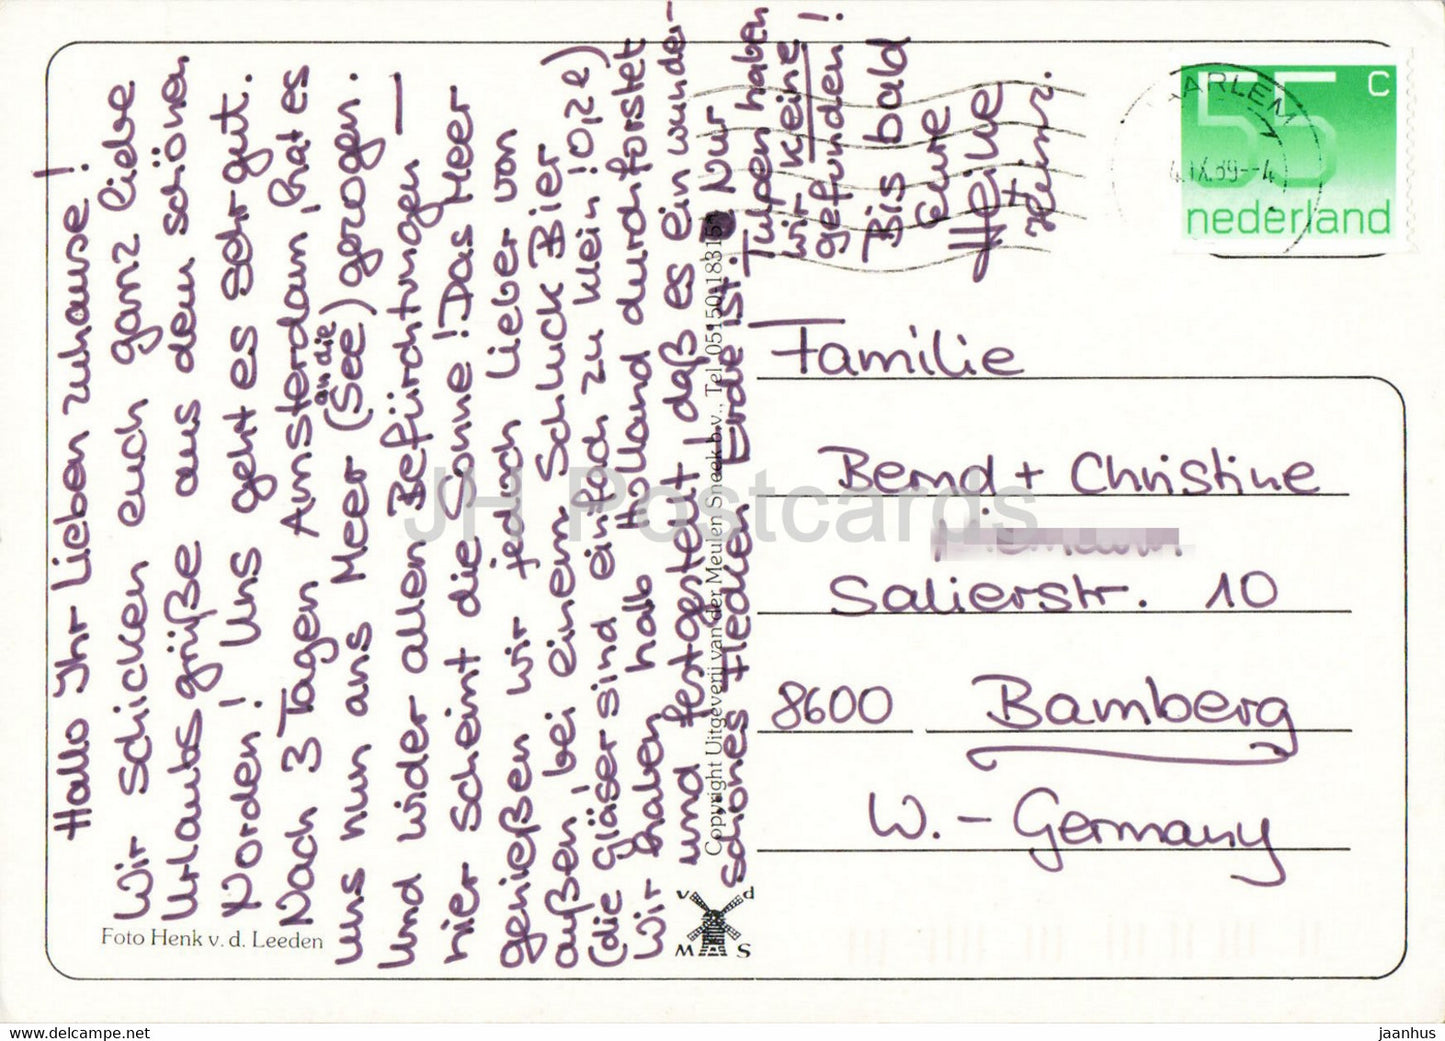 Hallo Ihr Lieben zuhause!
Wir schicken euch ganz liebe
Urlaubsgrüße aus dem schönen
Norden! Uns geht es sehr gut.
Nach 3 Tagen Amsterdam, hat es
uns nun ans Meer (an die See) gezogen.
Und wider allen Befürchtungen —
hier scheint die Sonne! Das Meer
genießen wir jedoch lieber von
außen, bei einem Schluck Bier
(die Gläser sind einfach zu klein! 0,2l)
Wir haben halb Holland durchforstet
und festgestellt, daß es ein wunder-
schönes Flecken Erde ist. Nur
Tulpen haben
wir keine
gefunden!
Bis bald
Eure
Heike
+ Heinr.
Foto Henk v. d. Leeden
Copyright Uitgeverij van der Meulen Sneek b.v., Tel. 05150-18315
v d
M S
HAARLEM
4.IX.89--4
55 c
nederland
Familie
Bernd + Christine
Salierstr. 10
8600 Bamberg
W.-Germany
JH Postcards
www.delcampe.net
jaanhus